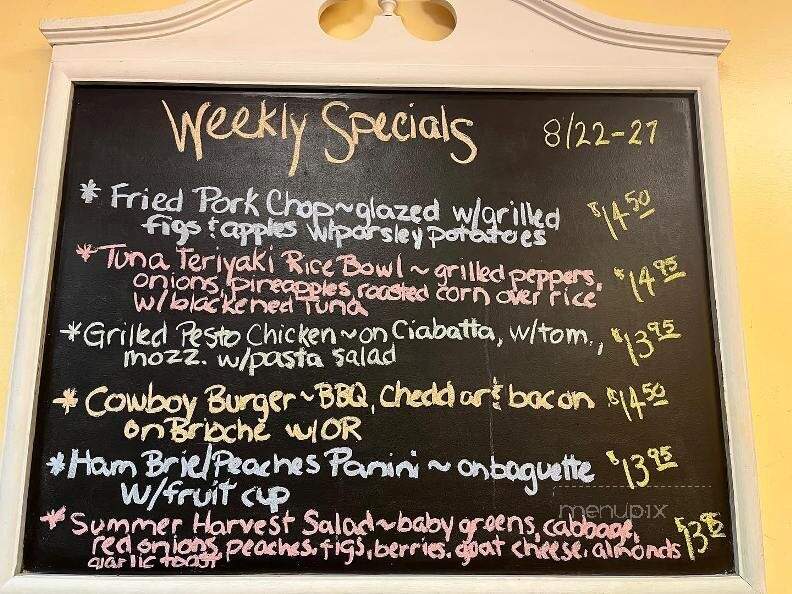 Weekly Specials 8/22-27
* Fried Pork Chop~glazed w/grilled $14.50
figs & apples w/parsley potatoes
* Tuna Teriyaki Rice Bowl ~ grilled peppers, $14.95
onions, pineapples, roasted corn over rice
w/blackened tuna
* Grilled Pesto Chicken~on Ciabatta, w/tom., $13.95
mozz. w/pasta salad
* Cowboy Burger~BBQ, cheddar & bacon $14.50
on Brioche w/OR
* Ham Brie/Peaches Panini ~ on baguette $13.95
w/fruit cup
menupix
* Summer Harvest Salad~baby greens, cabbage,
red onions, peaches, figs, berries, goat cheese, almonds
garlic toast